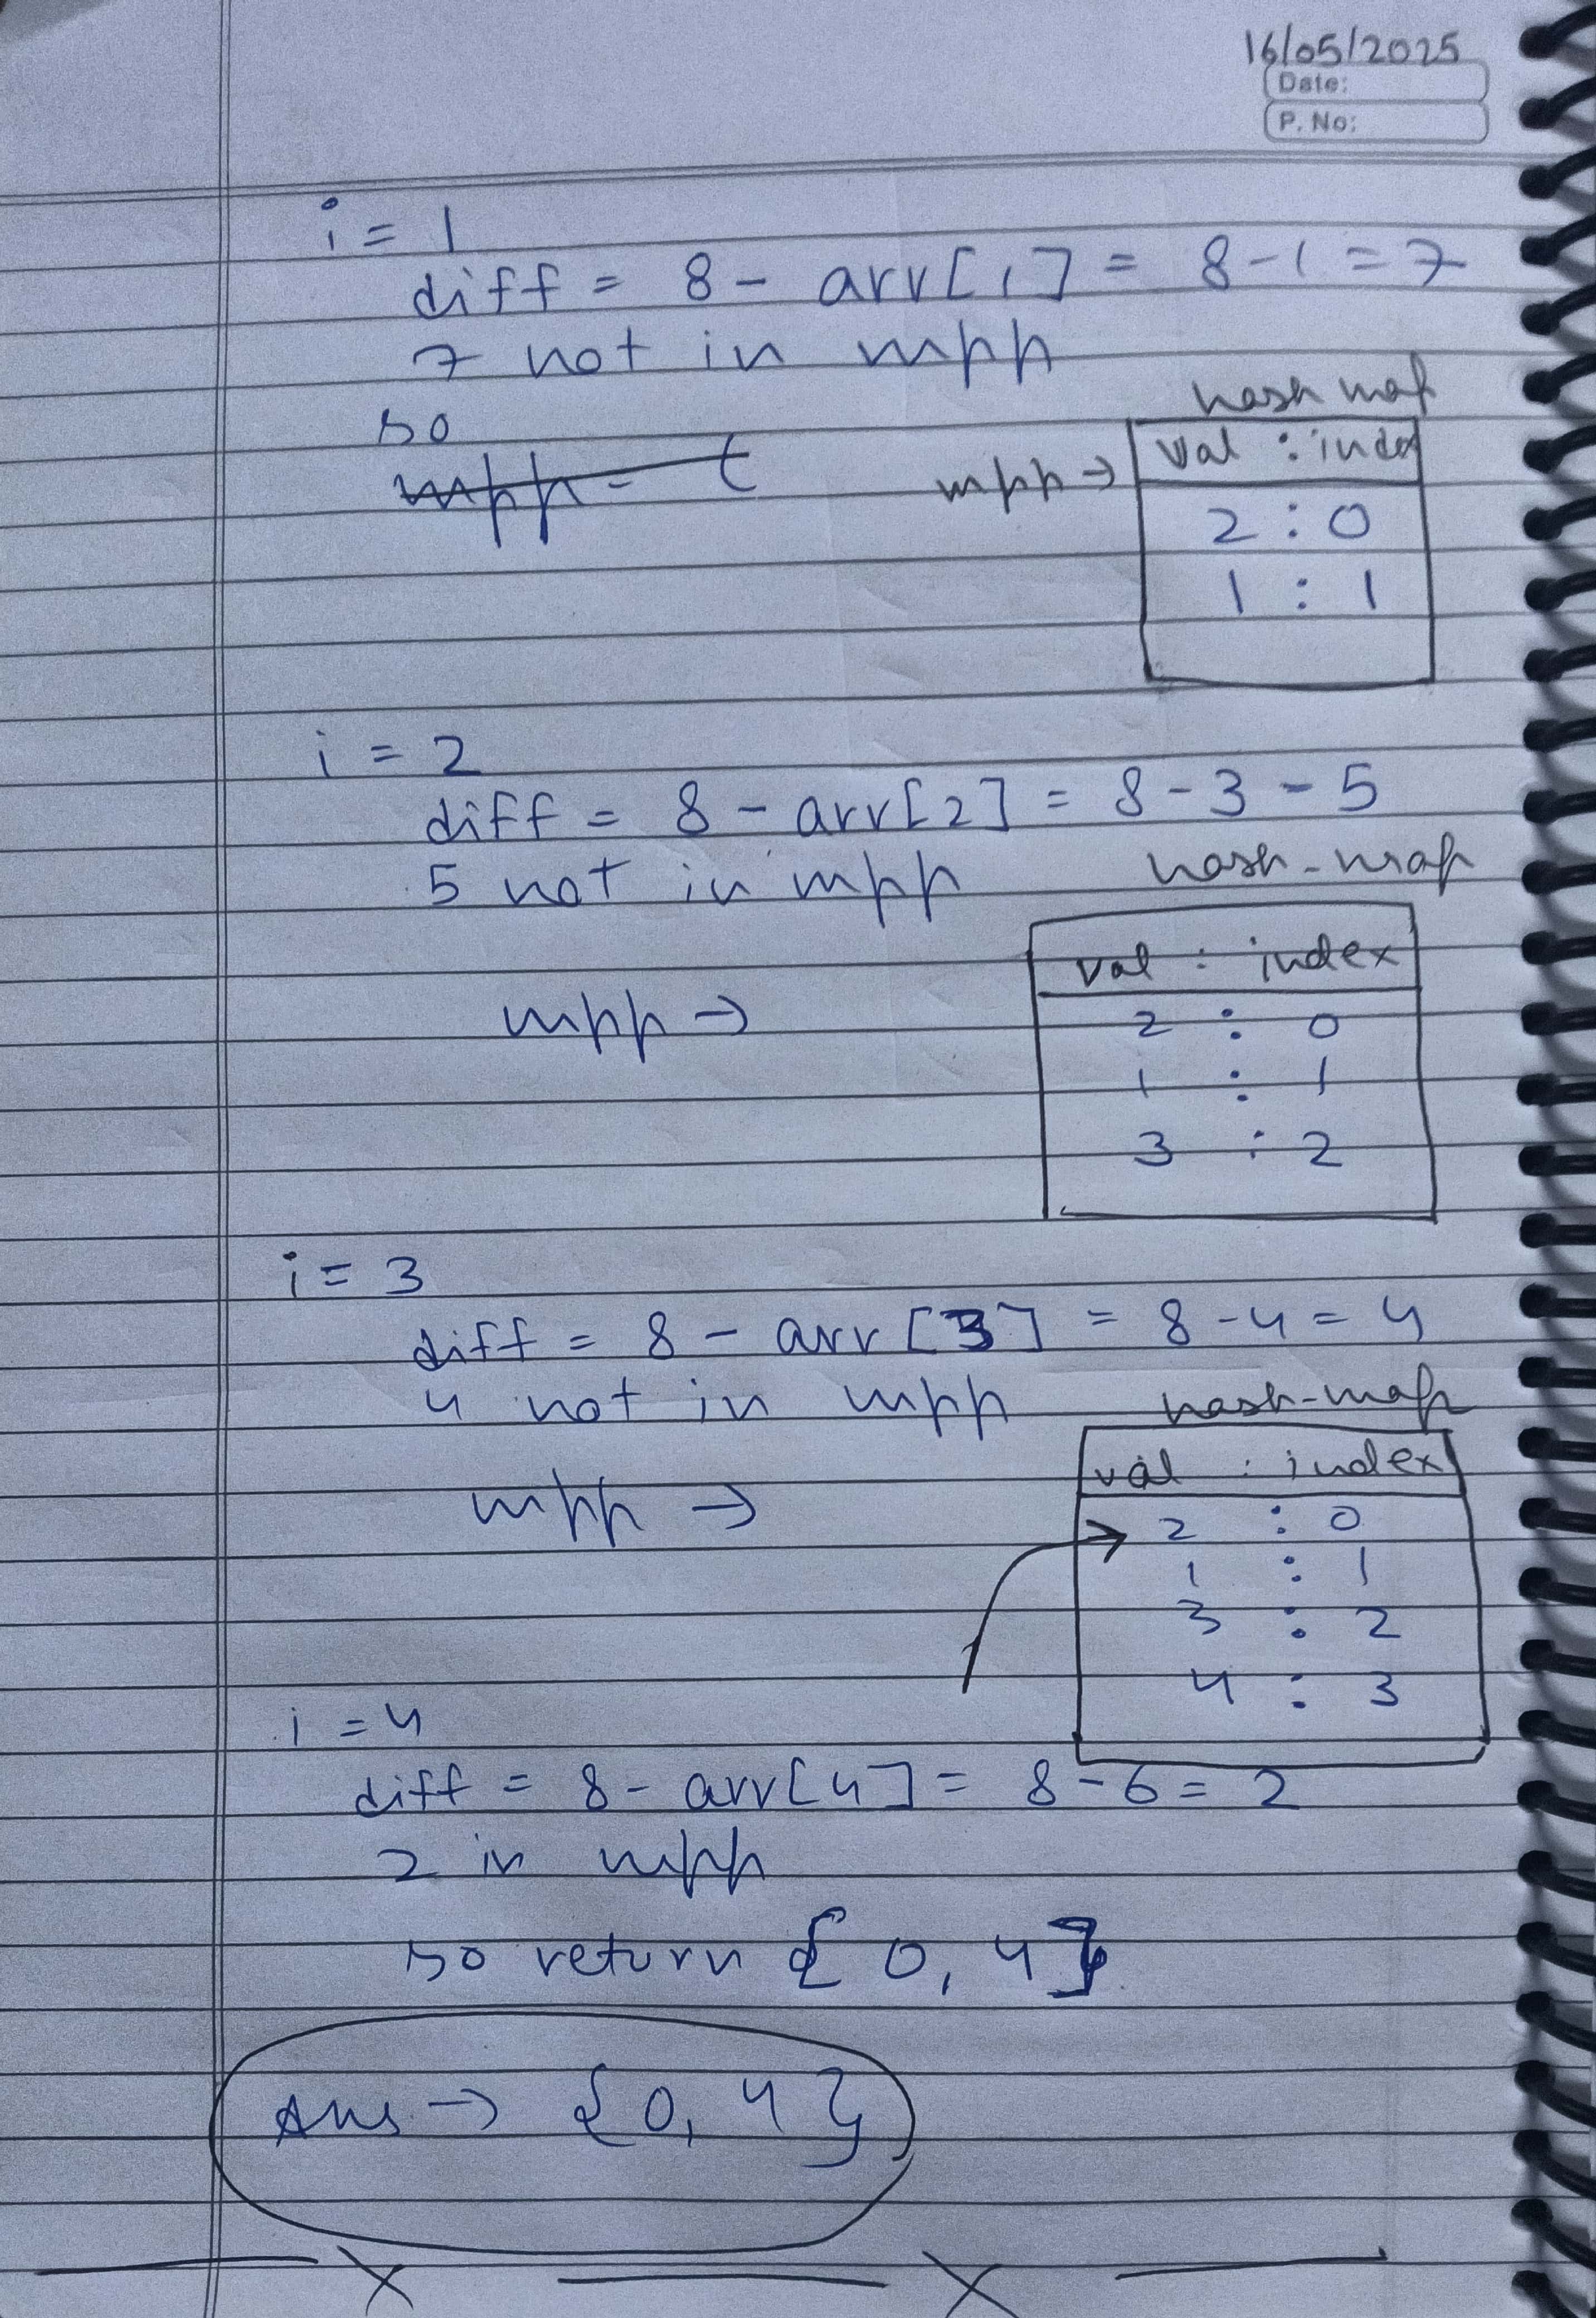 16/05/2025
Date:
P. No:
i = 1
diff = 8 - arr[1] = 8-1 = 7
7 not in mpp
so
hash map
mpp →
val : index
2 : 0
1 : 1
i = 2
diff = 8 - arr[2] = 8 - 3 - 5
5 not in mpp
hash-map
mpp →
val : index
2 : 0
1 : 1
3 : 2
i = 3
diff = 8 - arr[3] = 8 - 4 = 4
4 not in mpp
hash-map
mpp →
val : index
2 : 0
1 : 1
3 : 2
4 : 3
i = 4
diff = 8 - arr[4] = 8 - 6 = 2
2 in mpp
so return {0, 4}
Ans → {0, 4}